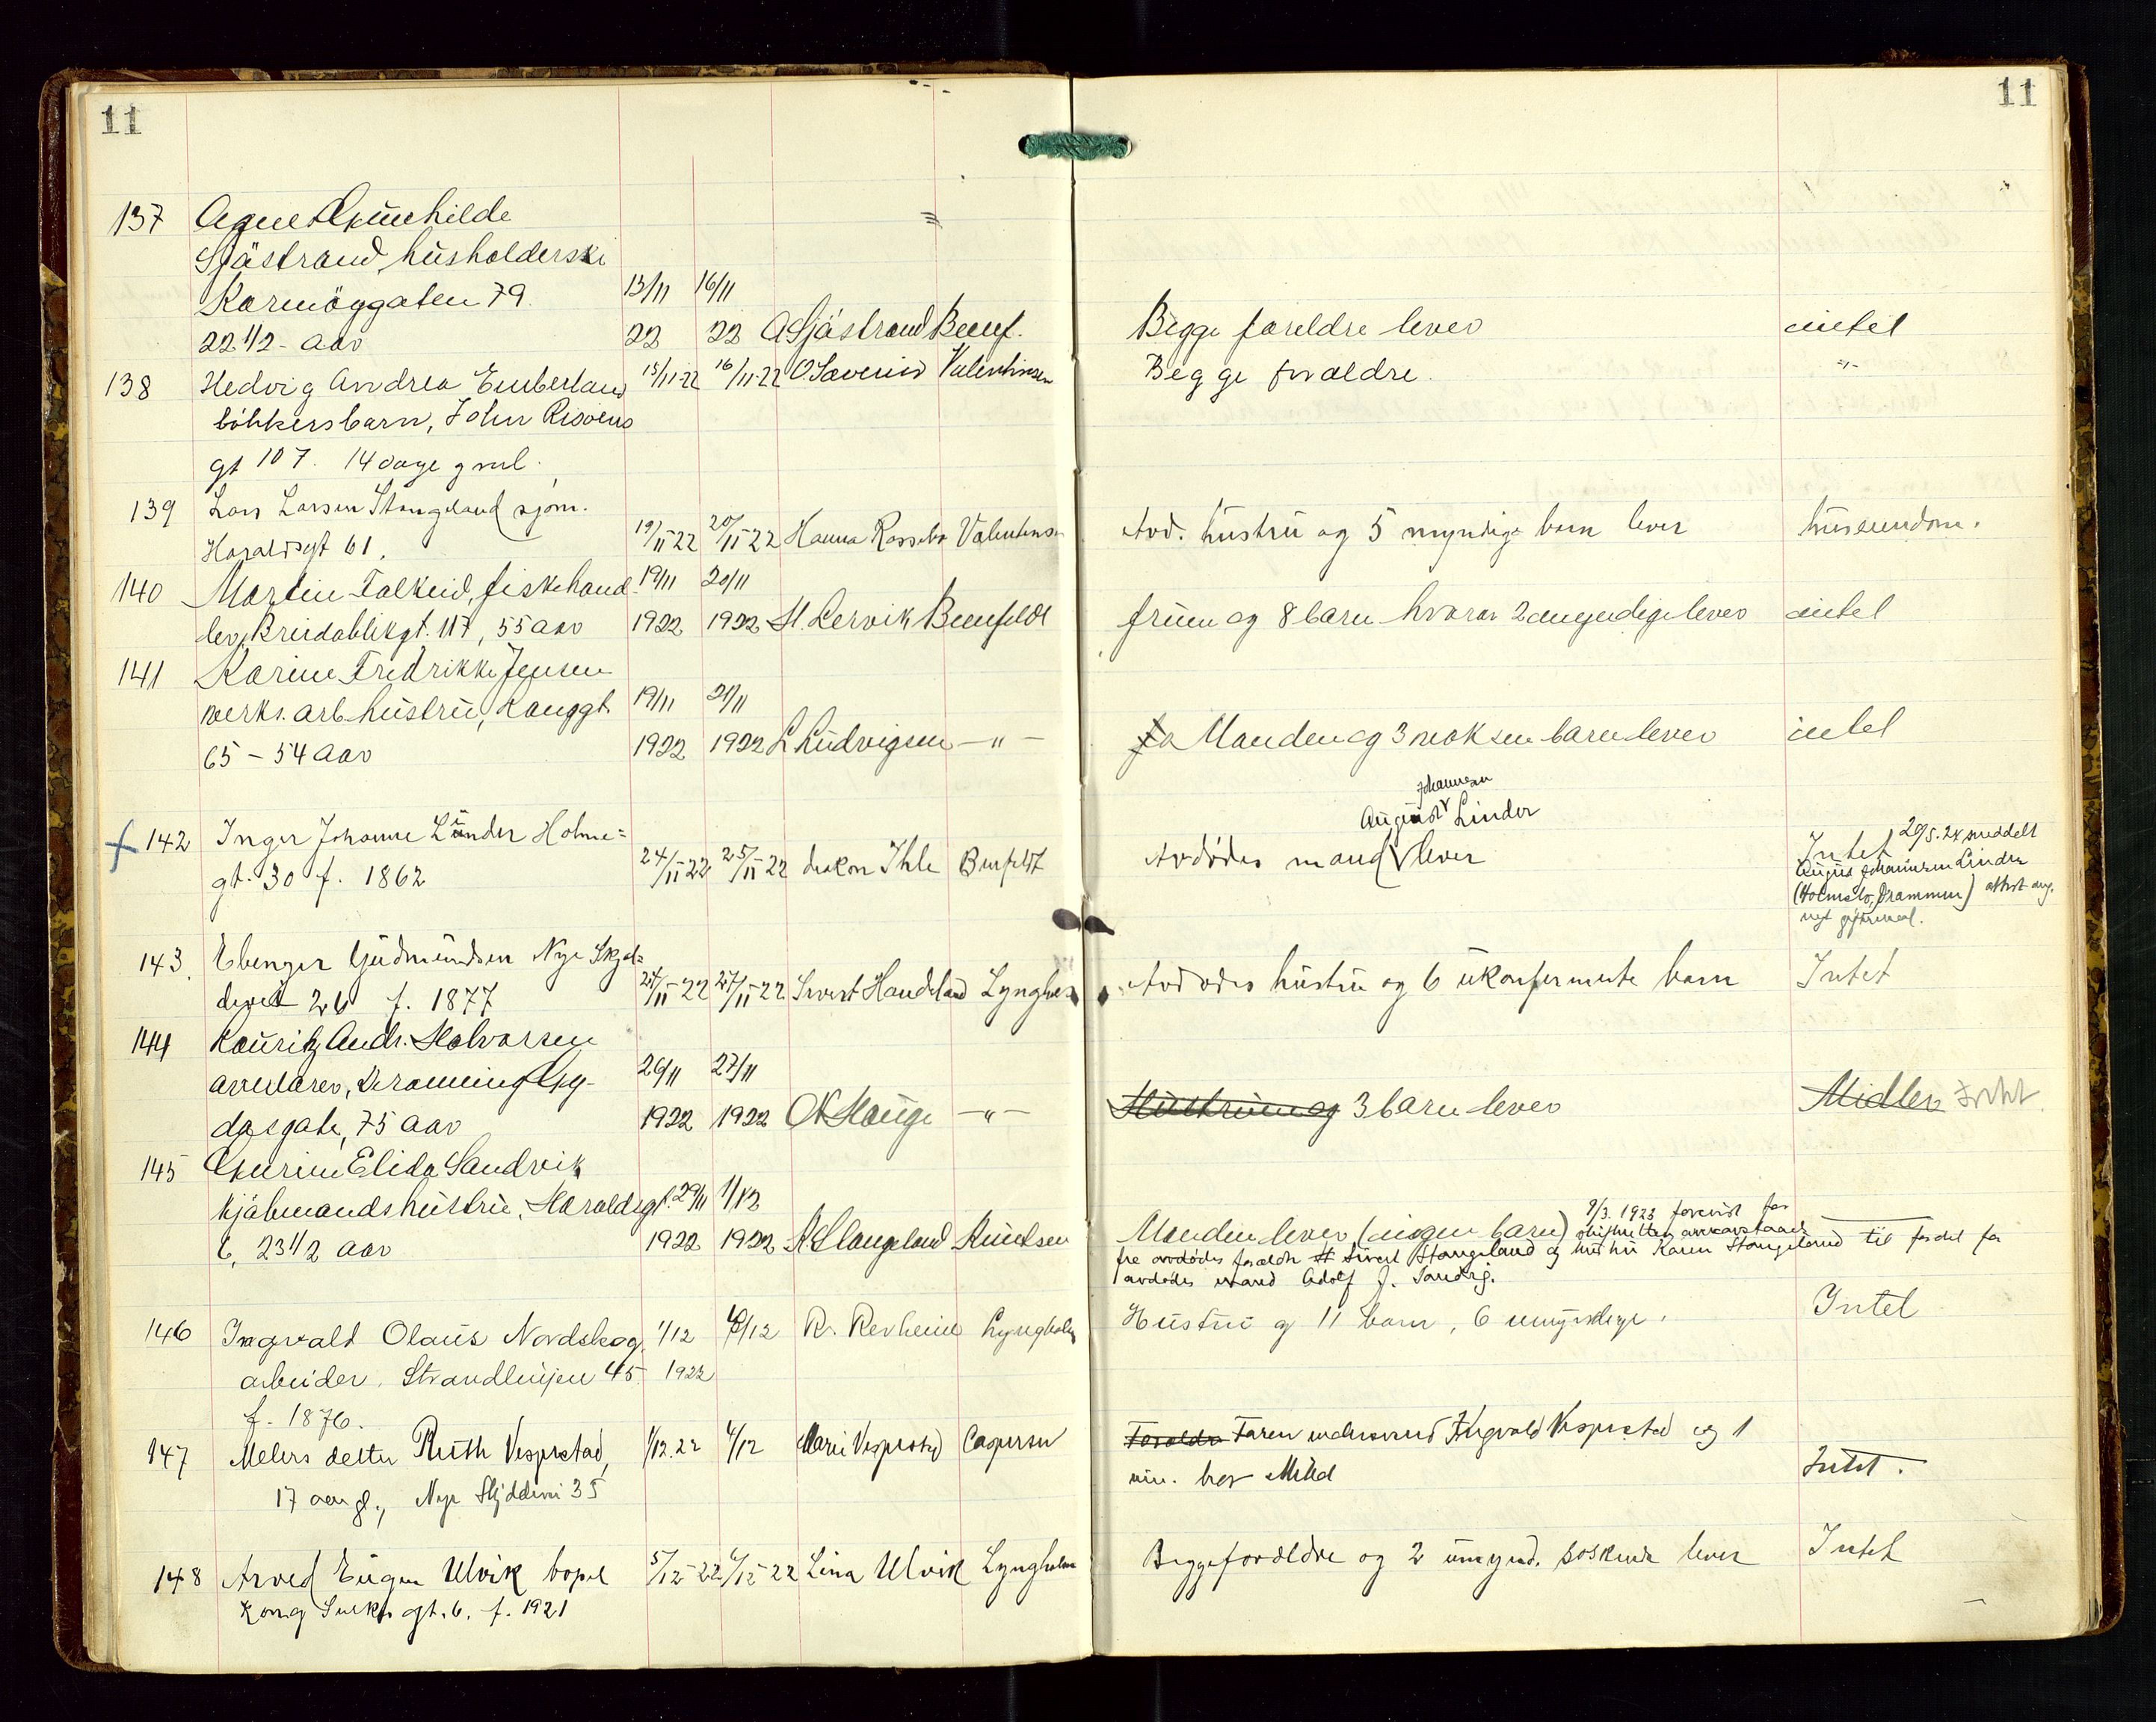 11
11
137 Agnes Gunhilde
Sjåstrand, husholderske
Karmöygaten 79.
22 1/2 - aar
13/11 22 16/11 22 A Sjåstrand Benf.
Begge foreldre lever intet
138 Hedvig Andrea Emberland
bökkersbarn, John Risøens
gt 107. 14 dage gml.
15/11-22 16/11-22 O Saverin Valentinsen
Begge forældre. -"-
139 Lars Larsen Stangeland sjøm.
Haraldsgt 61.
19/11 22 20/11 22 Hanna Rossebø Valentinsen
Avd. hustru og 5 myndige barn lever huseiendom.
140 Martin Falkeid, fiskehand-
ler, Breidablikgt. 117, 55 aar
19/11 1922 20/11 1922 H. Lervik Benfeldt
fruen og 8 barn hvorav 2 umyndige lever intet
141 Karine Fredrikke Jensen
verks. arb. hustru, Langgt.
65 - 54 aar
19/11 1922 21/11 1922 L Ludvigsen -"-
Manden og 3 voksne barn lever intet
142 Inger Johanne Linder Holme=
gt. 30 f. 1862
24/11 22 25/11 22 diakon Ihle Benfeldt
Johannesen
August Linder
Avdødes mand lever
Intet 20/5. 24 meddelt
August Johannesen Linder
(Holmsbo, Drammen) attest ang.
nyt giftermaal.
143. Ebenezer Gudmundsen Nye Skjol=
devei 26 f. 1877
24/11 22 27/11 22 Sivert Haudeland Lyngholm
Avdødes hustru og 6 ukonfirmerte barn Intet
144 Lauritz Andr. Halvorsen
arbeider, Dronning Gy-
dasgate, 75 aar
26/11 1922 27/11 1922 O K Hauge -"-
Hustruen og 3 barn lever Midler Intet
145 Gurine Elida Sandvik
kjøbmandshustru, Haraldsgt.
6, 23 1/2 aar
29/11 1922 1/12 1922 K Stangeland Knutsen
Manden lever (ingen barn) 9/3. 1923 forevist for
skifteretten arvavstaaelse
fra avdødes forældre Sivert Stangeland og hustru Karen Stangeland til fordel for
avdødes mand Adolf J. Sandvig.
146 Ingvald Olaus Nordskog
arbeider. Strandlinjen 45.
f. 1876.
1/12 4/12 1922 R. Revheim Lyngholm
Hustru og 11 barn, 6 umyndige. Intet
147 Melers datter Ruth Vesprestad,
17 aar gl., Nye Skjoldevei 35
1/12.22 4/12 Marie Vesprestad Caspersen
Forældre Faren Ingvald Vesprestad og 1
Intet.
148 Arved Eugen Ulvik bopel
Kong Sverres gt. 6. f. 1921
5/12 22 6/12 22 Lina Ulvik Lyngholm
Begge forældre og 2 umynd. søskende lever Intet